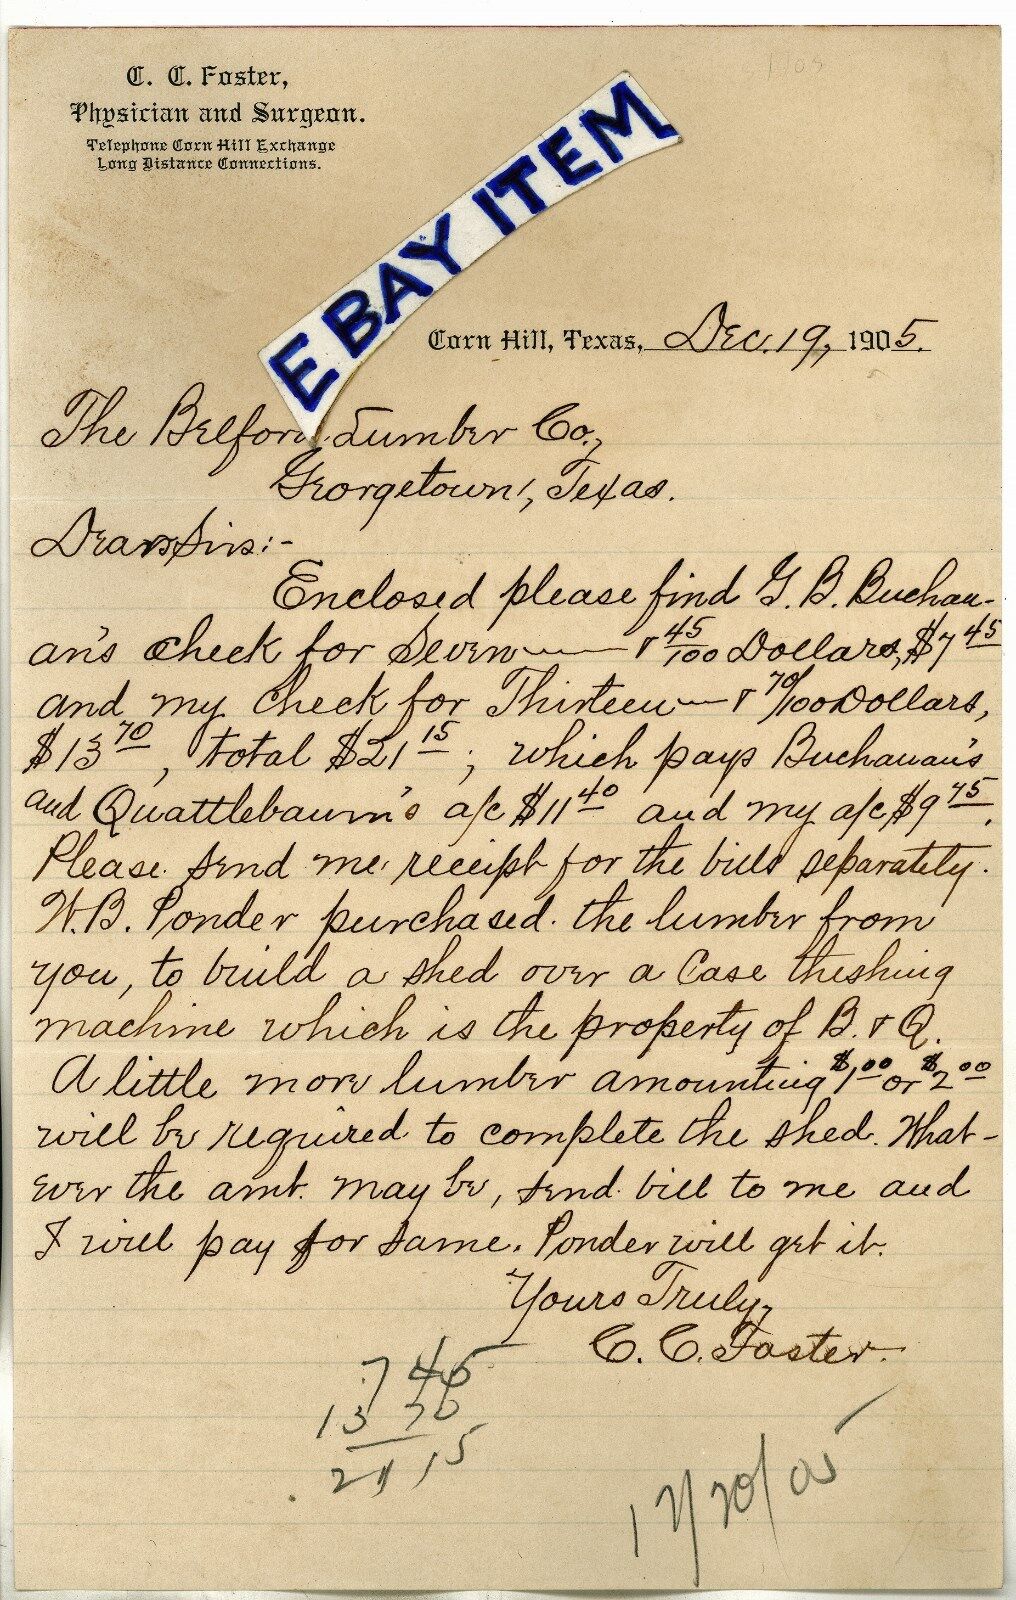 C. C. Foster,
Physician and Surgeon.
Telephone Corn Hill Exchange
Long Distance Connections.
EBAY ITEM
Corn Hill, Texas, Dec. 19, 1905.
The Belford Lumber Co.,
Georgetown, Texas.
Dear Sirs:-
Enclosed please find G. B. Buchan-
an's check for Seven & 45/100 Dollars, $7 45
and my check for Thirteen — & 70/100 Dollars,
$13 70, total $21 15; which pays Buchanan's
and Quattlebaum's a/c $11 40 and my a/c $9 75.
Please send me receipt for the bills separately.
W. B. Ponder purchased the lumber from
you, to build a shed over a Case theshing
machine which is the property of B. & Q.
A little more lumber amounting $1 00 or $2 00
will be required to complete the shed. What-
ever the amt. may be, send bill to me and
I will pay for same. Ponder will get it.
Yours Truly,
C. C. Foster.
7 45
13 70
21 15
12/20/05